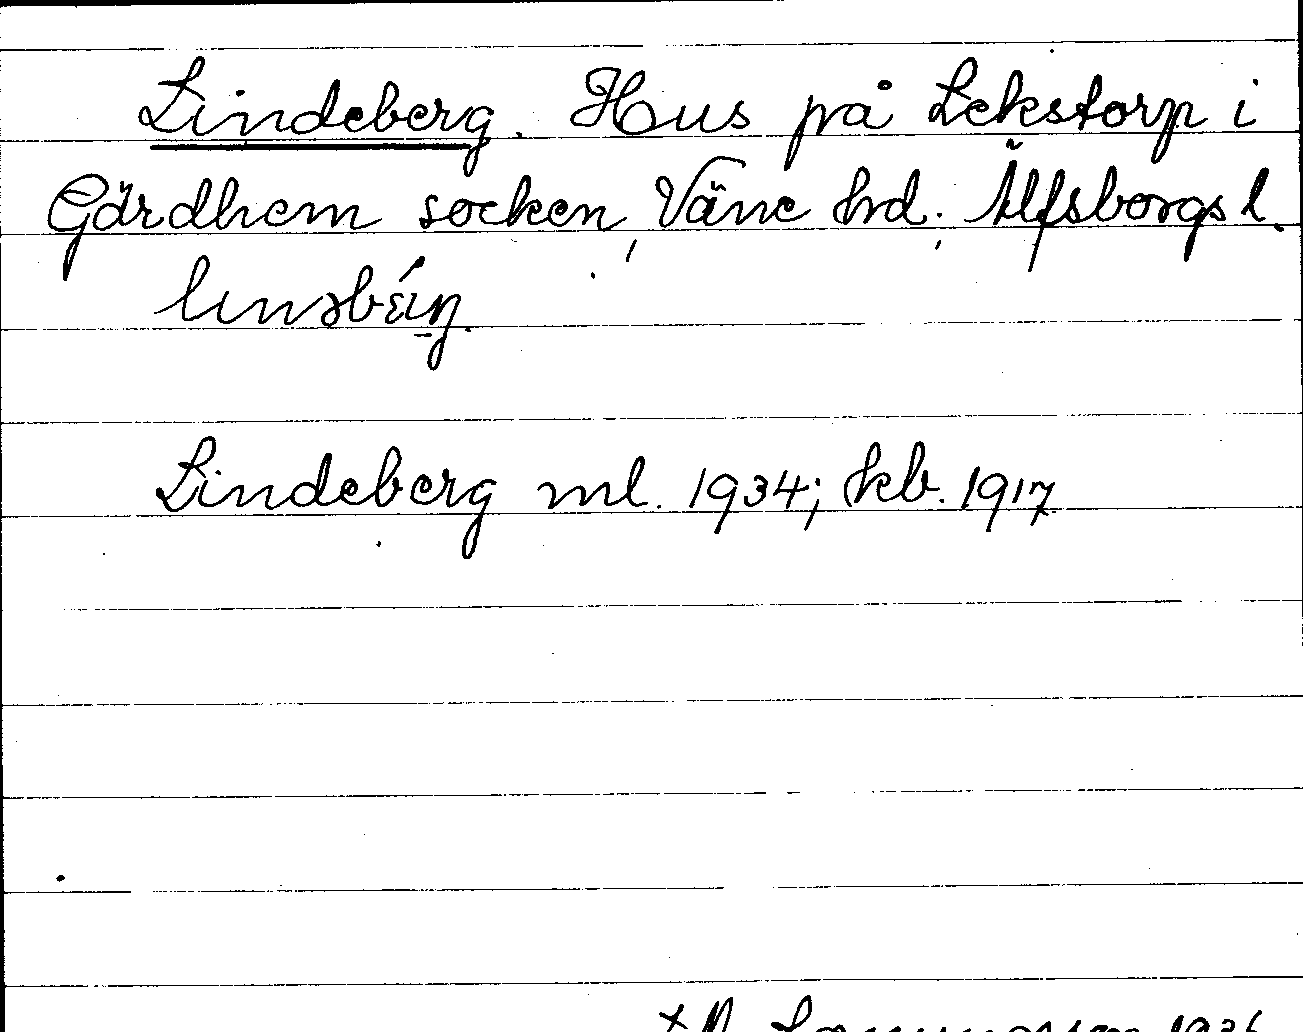 Lindeberg. Hus på Lekstorp i
Gärdhem socken, Väne hd, Älfsborgs l.
Lindeberg ml. 1934; kb. 1917